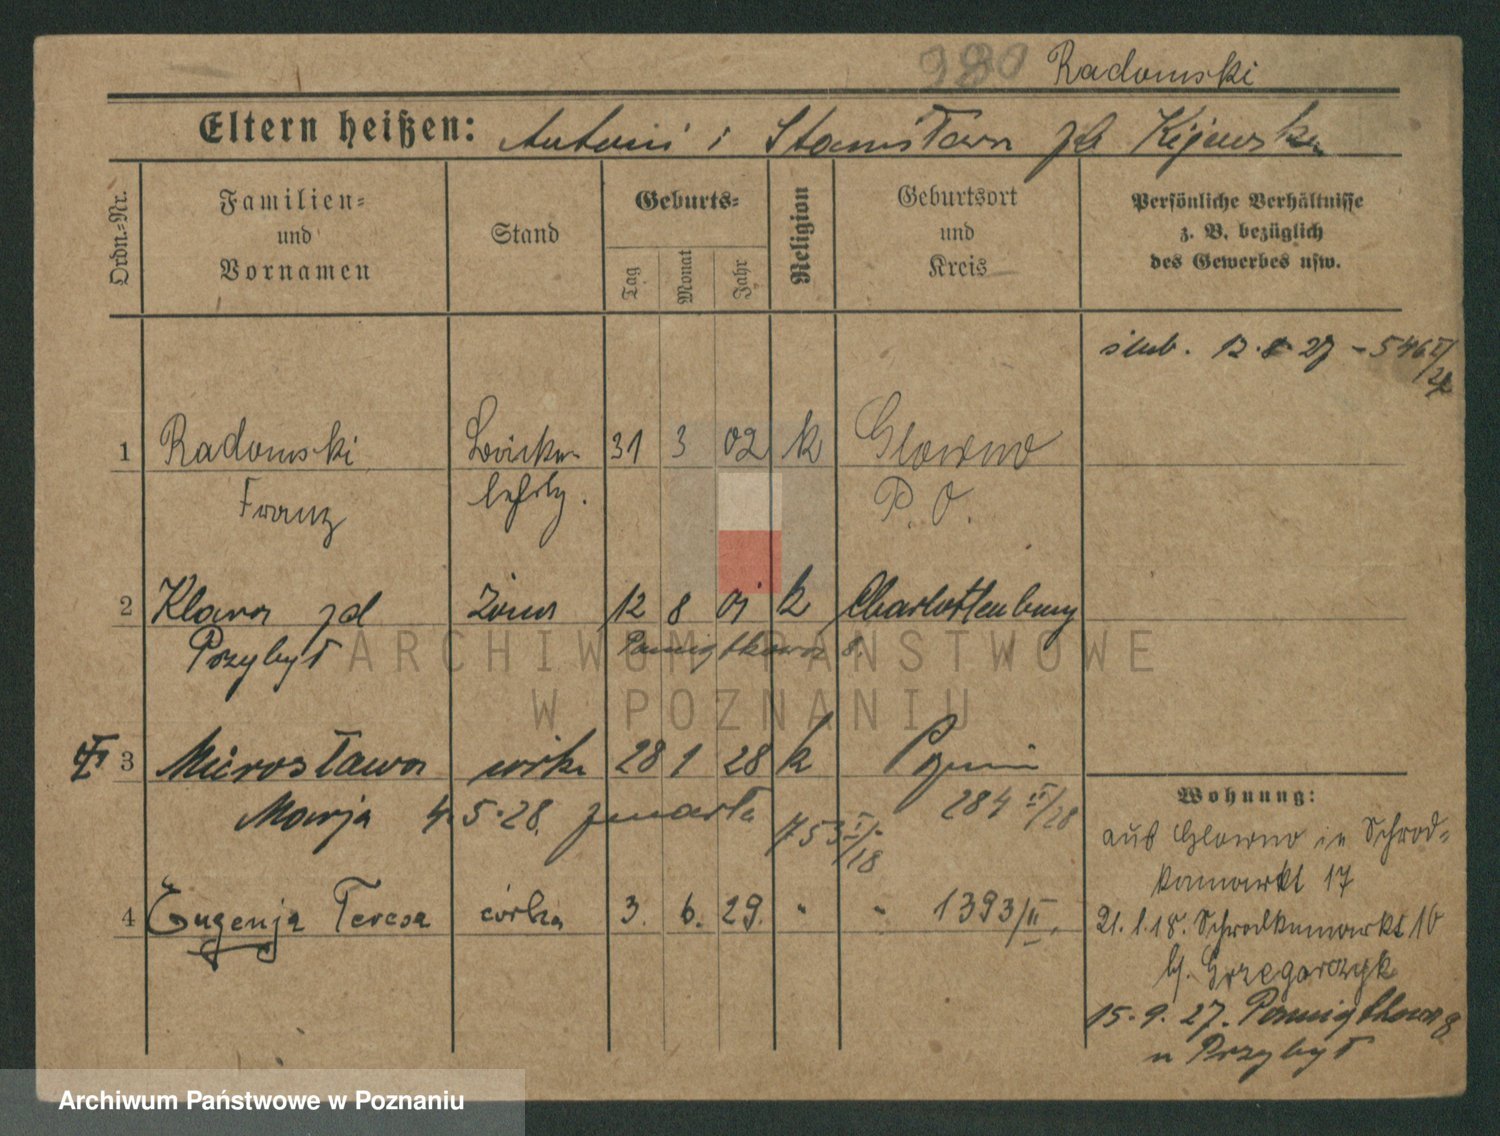 980 Radomski
Eltern heißen: Antoni i Stanisława zd Kijewska
Ordn.-Nr.
Familien-
und
Vornamen
Stand
Geburts-
Tag
Monat
Jahr
Religion
Geburtsort
und
Kreis
Persönliche Verhältnisse
z. B. bezüglich
des Gewerbes usw.
ślub. 12.8 27 - 546 II/27
1 Radomski 31 3 02 k Glowno
Franz P. O.
2 Klara zd żona 12 8 01 k Charlottenburg
Przybył Pamiątkowa 8.
3 Mirosława córka 28 1 28 k
Marja 4. 5. 28. zmarła 753 I/18 284 II/28
4 Eugenja Teresa córka 3. 6. 29. " " 1393/II.
Wohnung:
aus Glowno in Schrod-
kamarkt 17
21. 1. 18. Schrodkamarkt 10
bei Grzegorczyk
15. 9. 27. Pamiątkowa 8
u Przybył
ARCHIWUM PAŃSTWOWE
W POZNANIU
Archiwum Państwowe w Poznaniu